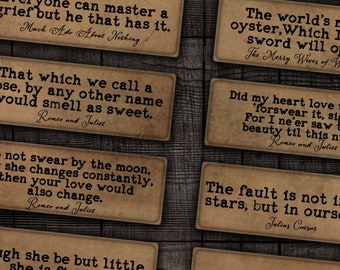 Everyone can master a
grief but he that has it.
Much Ado About Nothing
That which we call a
ose, by any other name
would smell as sweet.
Romeo and Juliet
not swear by the moon,
she changes constantly,
then your love would
also change.
Romeo and Juliet
ugh she be but little
The world's m
oyster, Which I
sword will op
The Merry Wives of W
Did my heart love
forswear it, sig
For I ne'er saw t
beauty til this n
Romeo and Juliet
The fault is not i
stars, but in ourse
Julius Caesar